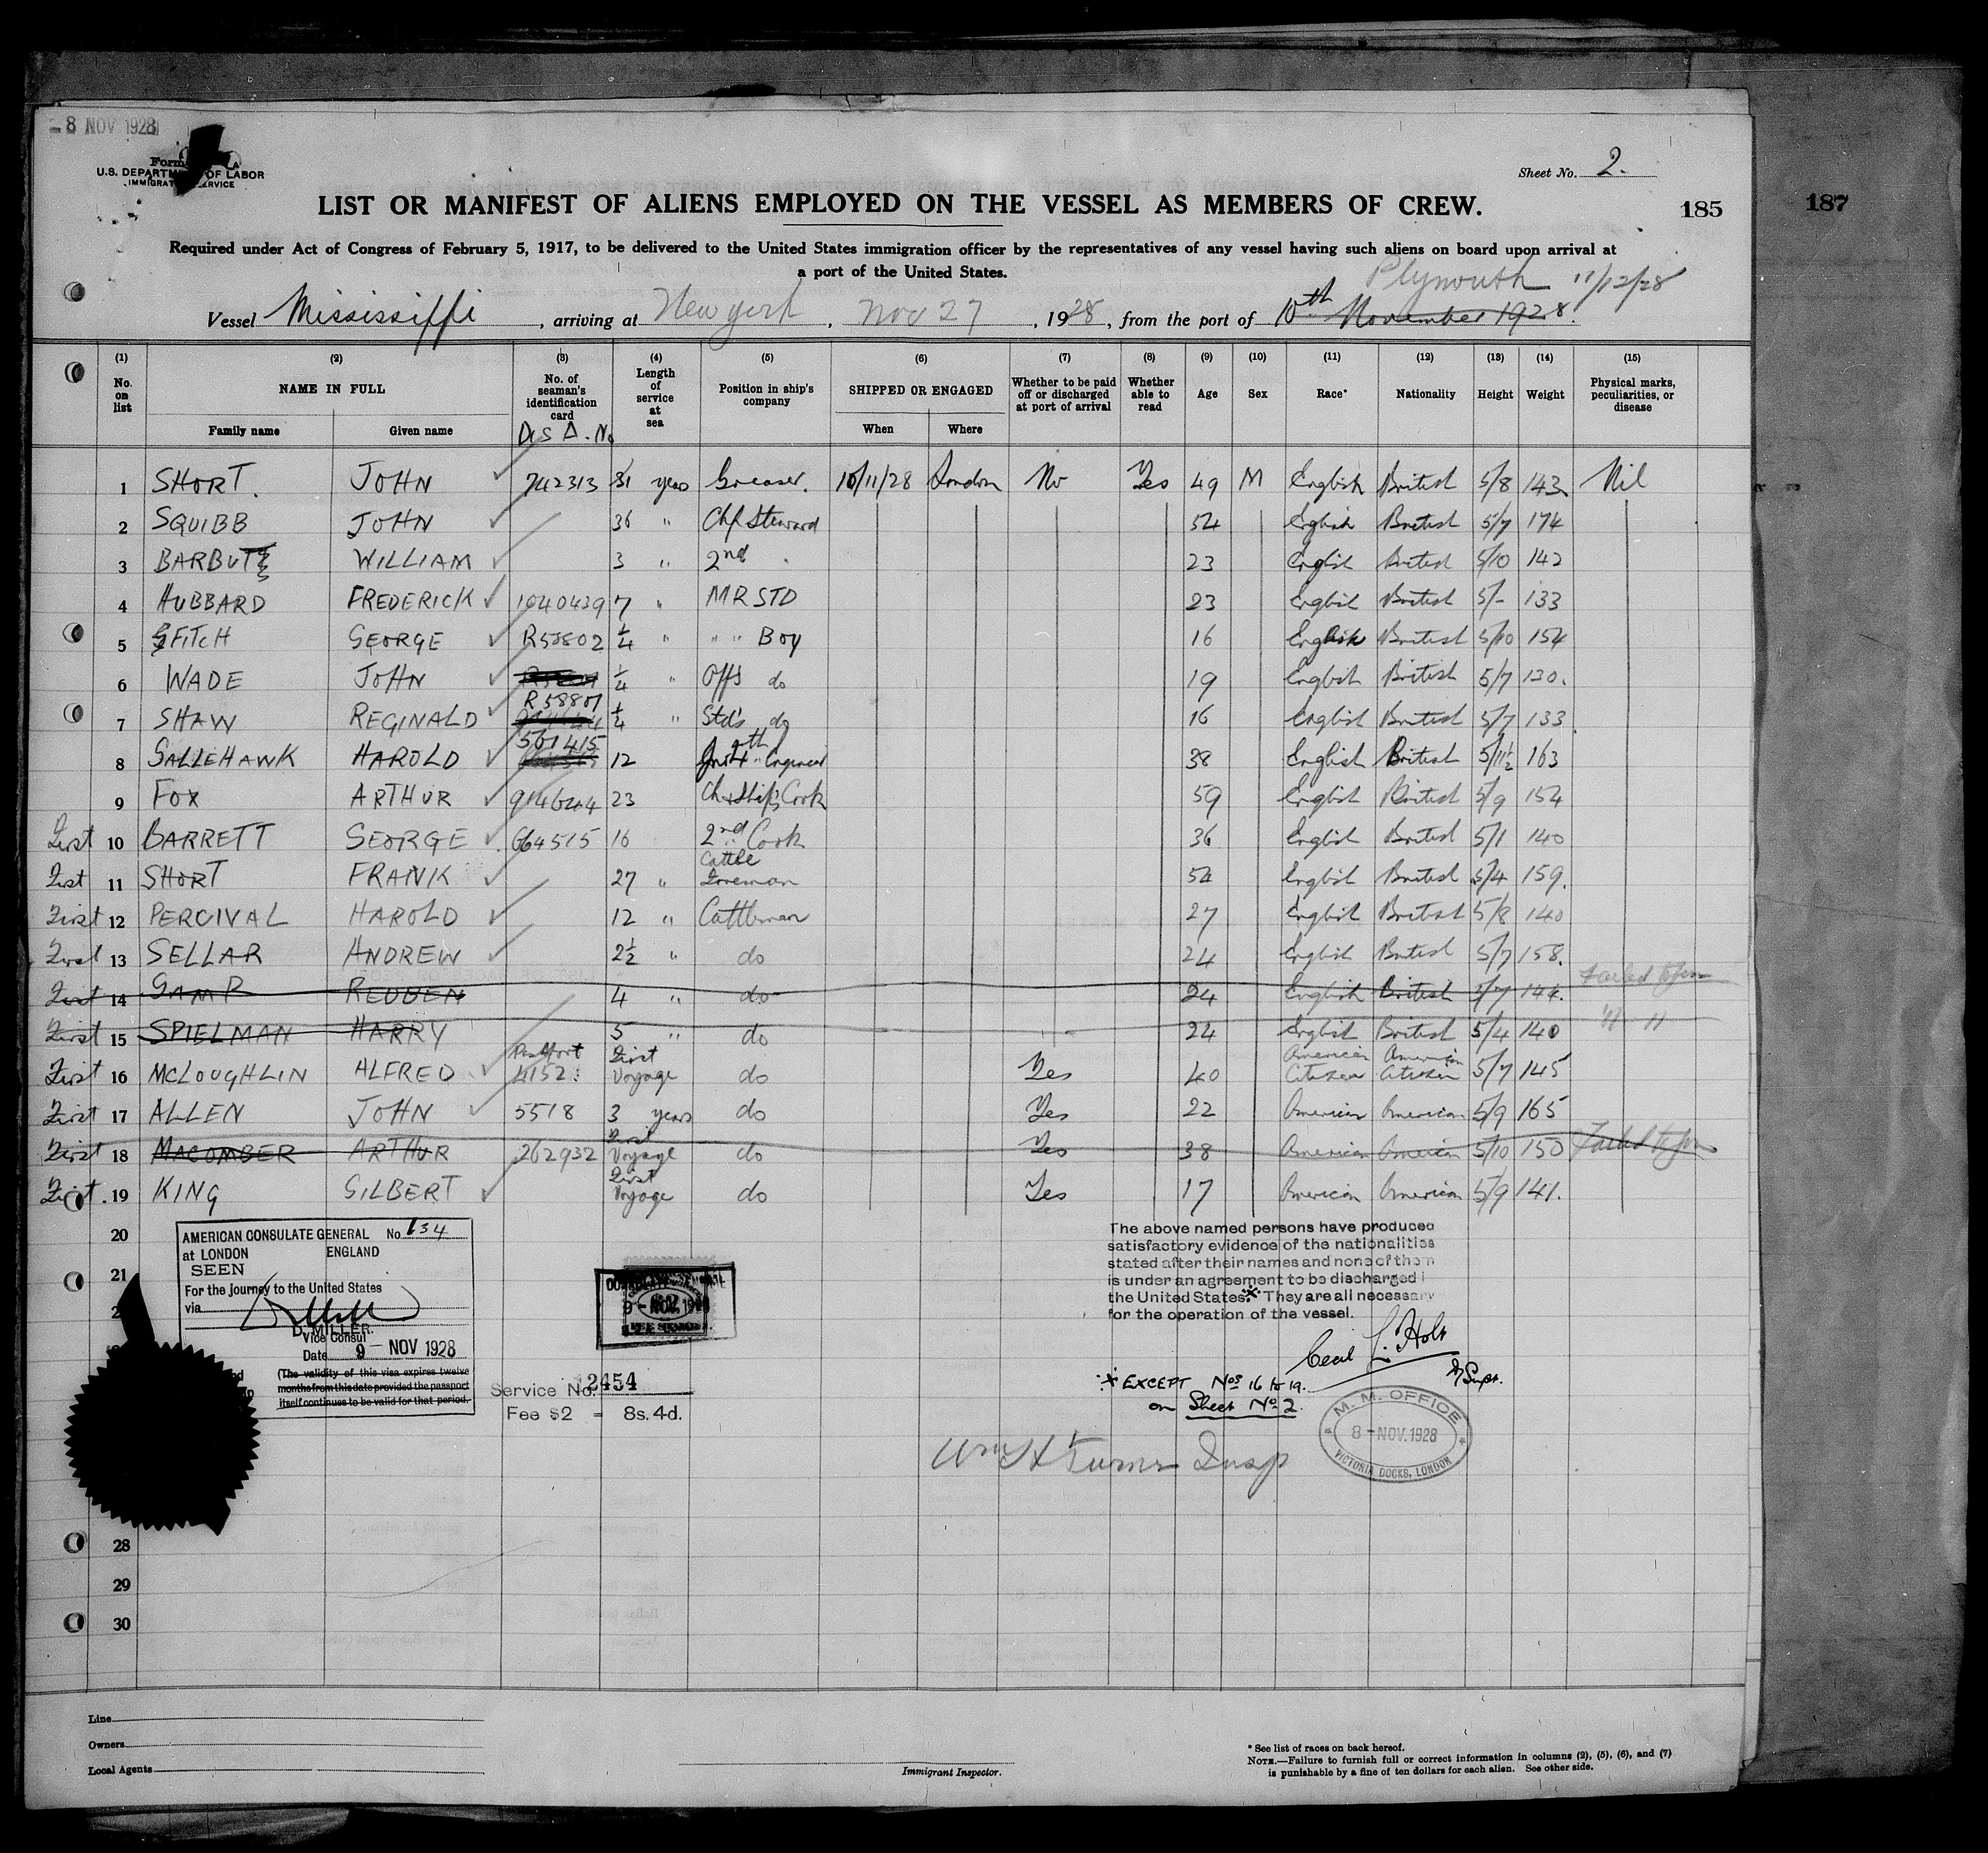 - 8 NOV 1928
U.S. DEPARTMENT OF LABOR
IMMIGRATION SERVICE
Sheet No. 2.
LIST OR MANIFEST OF ALIENS EMPLOYED ON THE VESSEL AS MEMBERS OF CREW.
185
187
Required under Act of Congress of February 5, 1917, to be delivered to the United States immigration officer by the representatives of any vessel having such aliens on board upon arrival at
a port of the United States.
Plymouth 11/12/28
Vessel Mississippi, arriving at New York, Nov 27, 1928, from the port of 10th November 1928.
(1) (2) (3) (4) (5) (6) (7) (8) (9) (10) (11) (12) (13) (14) (15)
No. on list
NAME IN FULL
Family name
Given name
No. of seaman's identification card
Dis A. No
Length of service at sea
Position in ship's company
SHIPPED OR ENGAGED
When
Where
Whether to be paid off or discharged at port of arrival
Whether able to read
Age
Sex
Race*
Nationality
Height
Weight
Physical marks, peculiarities, or disease
1 SHORT. JOHN 742313 31 years Greaser. 10/11/28 London No Yes 49 M English British 5/8 143 Nil
2 SQUIBB JOHN 36 " Chf Steward 54 English British 5/7 174
3 WILLIAM 3 " 2nd " 23 English British 5/10 142
4 HUBBARD FREDERICK 1040439 7 " MR STD 23 English British 5/- 133
5 FITCH GEORGE R58802 1/4 " " " Boy 16 English British 5/10 154
6 WADE JOHN 1/4 " Offs do 19 English British 5/7 130.
7 SHAW REGINALD R58801 1/4 " Std's do 16 English British 5/7 133
8 SALLEHAWK HAROLD 561415 12 Engineer 38 English British 5/11½ 163
9 FOX ARTHUR 914644 23 Ch Ship's Cook 59 English British 5/9 154
First 10 BARRETT GEORGE 664515 16 2nd Cook 36 English British 5/1 140
First 11 SHORT FRANK 27 " Cattle Foreman 54 English British 5/4 159.
First 12 PERCIVAL HAROLD 12 " Cattleman 27 English British 5/8 140
First 13 SELLAR ANDREW 2½ " do 24 English British 5/7 158.
First 14 GAMP REUBEN 4 " do 24 English British 5/7 144. Failed to join
First 15 SPIELMAN HARRY 5 " do 24 English British 5/4 140 " "
First 16 MCLOUGHLIN ALFRED Passport 4152 First Voyage do Yes 40 American Citizen American Citizen 5/7 145
First 17 ALLEN JOHN 5518 3 years do Yes 22 American American 5/9 165
First 18 MACOMBER ARTHUR 262932 First Voyage do Yes 38 American American 5/10 150 Failed to join
First. 19 KING GILBERT First Voyage do Yes 17 American American 5/9 141.
20
21
28
29
30
AMERICAN CONSULATE GENERAL No. 134
at LONDON ENGLAND
SEEN
For the journey to the United States
via
D. MILLER.
Vice Consul
Date 9 - NOV 1928
(The validity of this visa expires twelve
months from this date provided the passport
itself continues to be valid for that period.
9 - NOV. 1928
Service No. 12454
Fee $2 = 8s. 4d.
The above named persons have produced
satisfactory evidence of the nationalities
stated after their names and none of them
is under an agreement to be discharged i
the United States.* They are all necessary
for the operation of the vessel.
Cecil L. Holt
D/Supt.
* EXCEPT Nos 16 to 19.
on Sheet No 2.
M. M. OFFICE
8 - NOV. 1928
VICTORIA DOCKS, LONDON
Wm H Turner Insp
Line
Owners
Local Agents
Immigrant Inspector.
* See list of races on back hereof.
NOTE.—Failure to furnish full or correct information in columns (2), (5), (6), and (7)
is punishable by a fine of ten dollars for each alien. See other side.